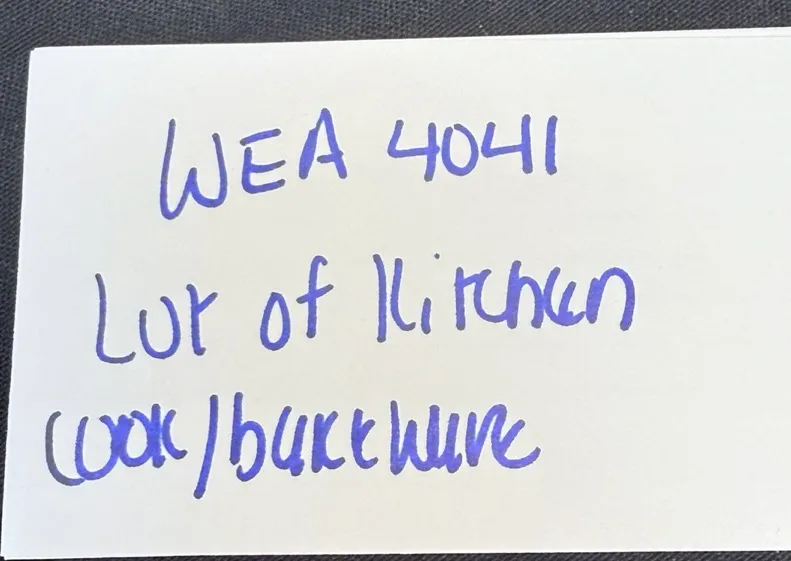 WEA 4041
Lot of Kitchen
cook/bakeware